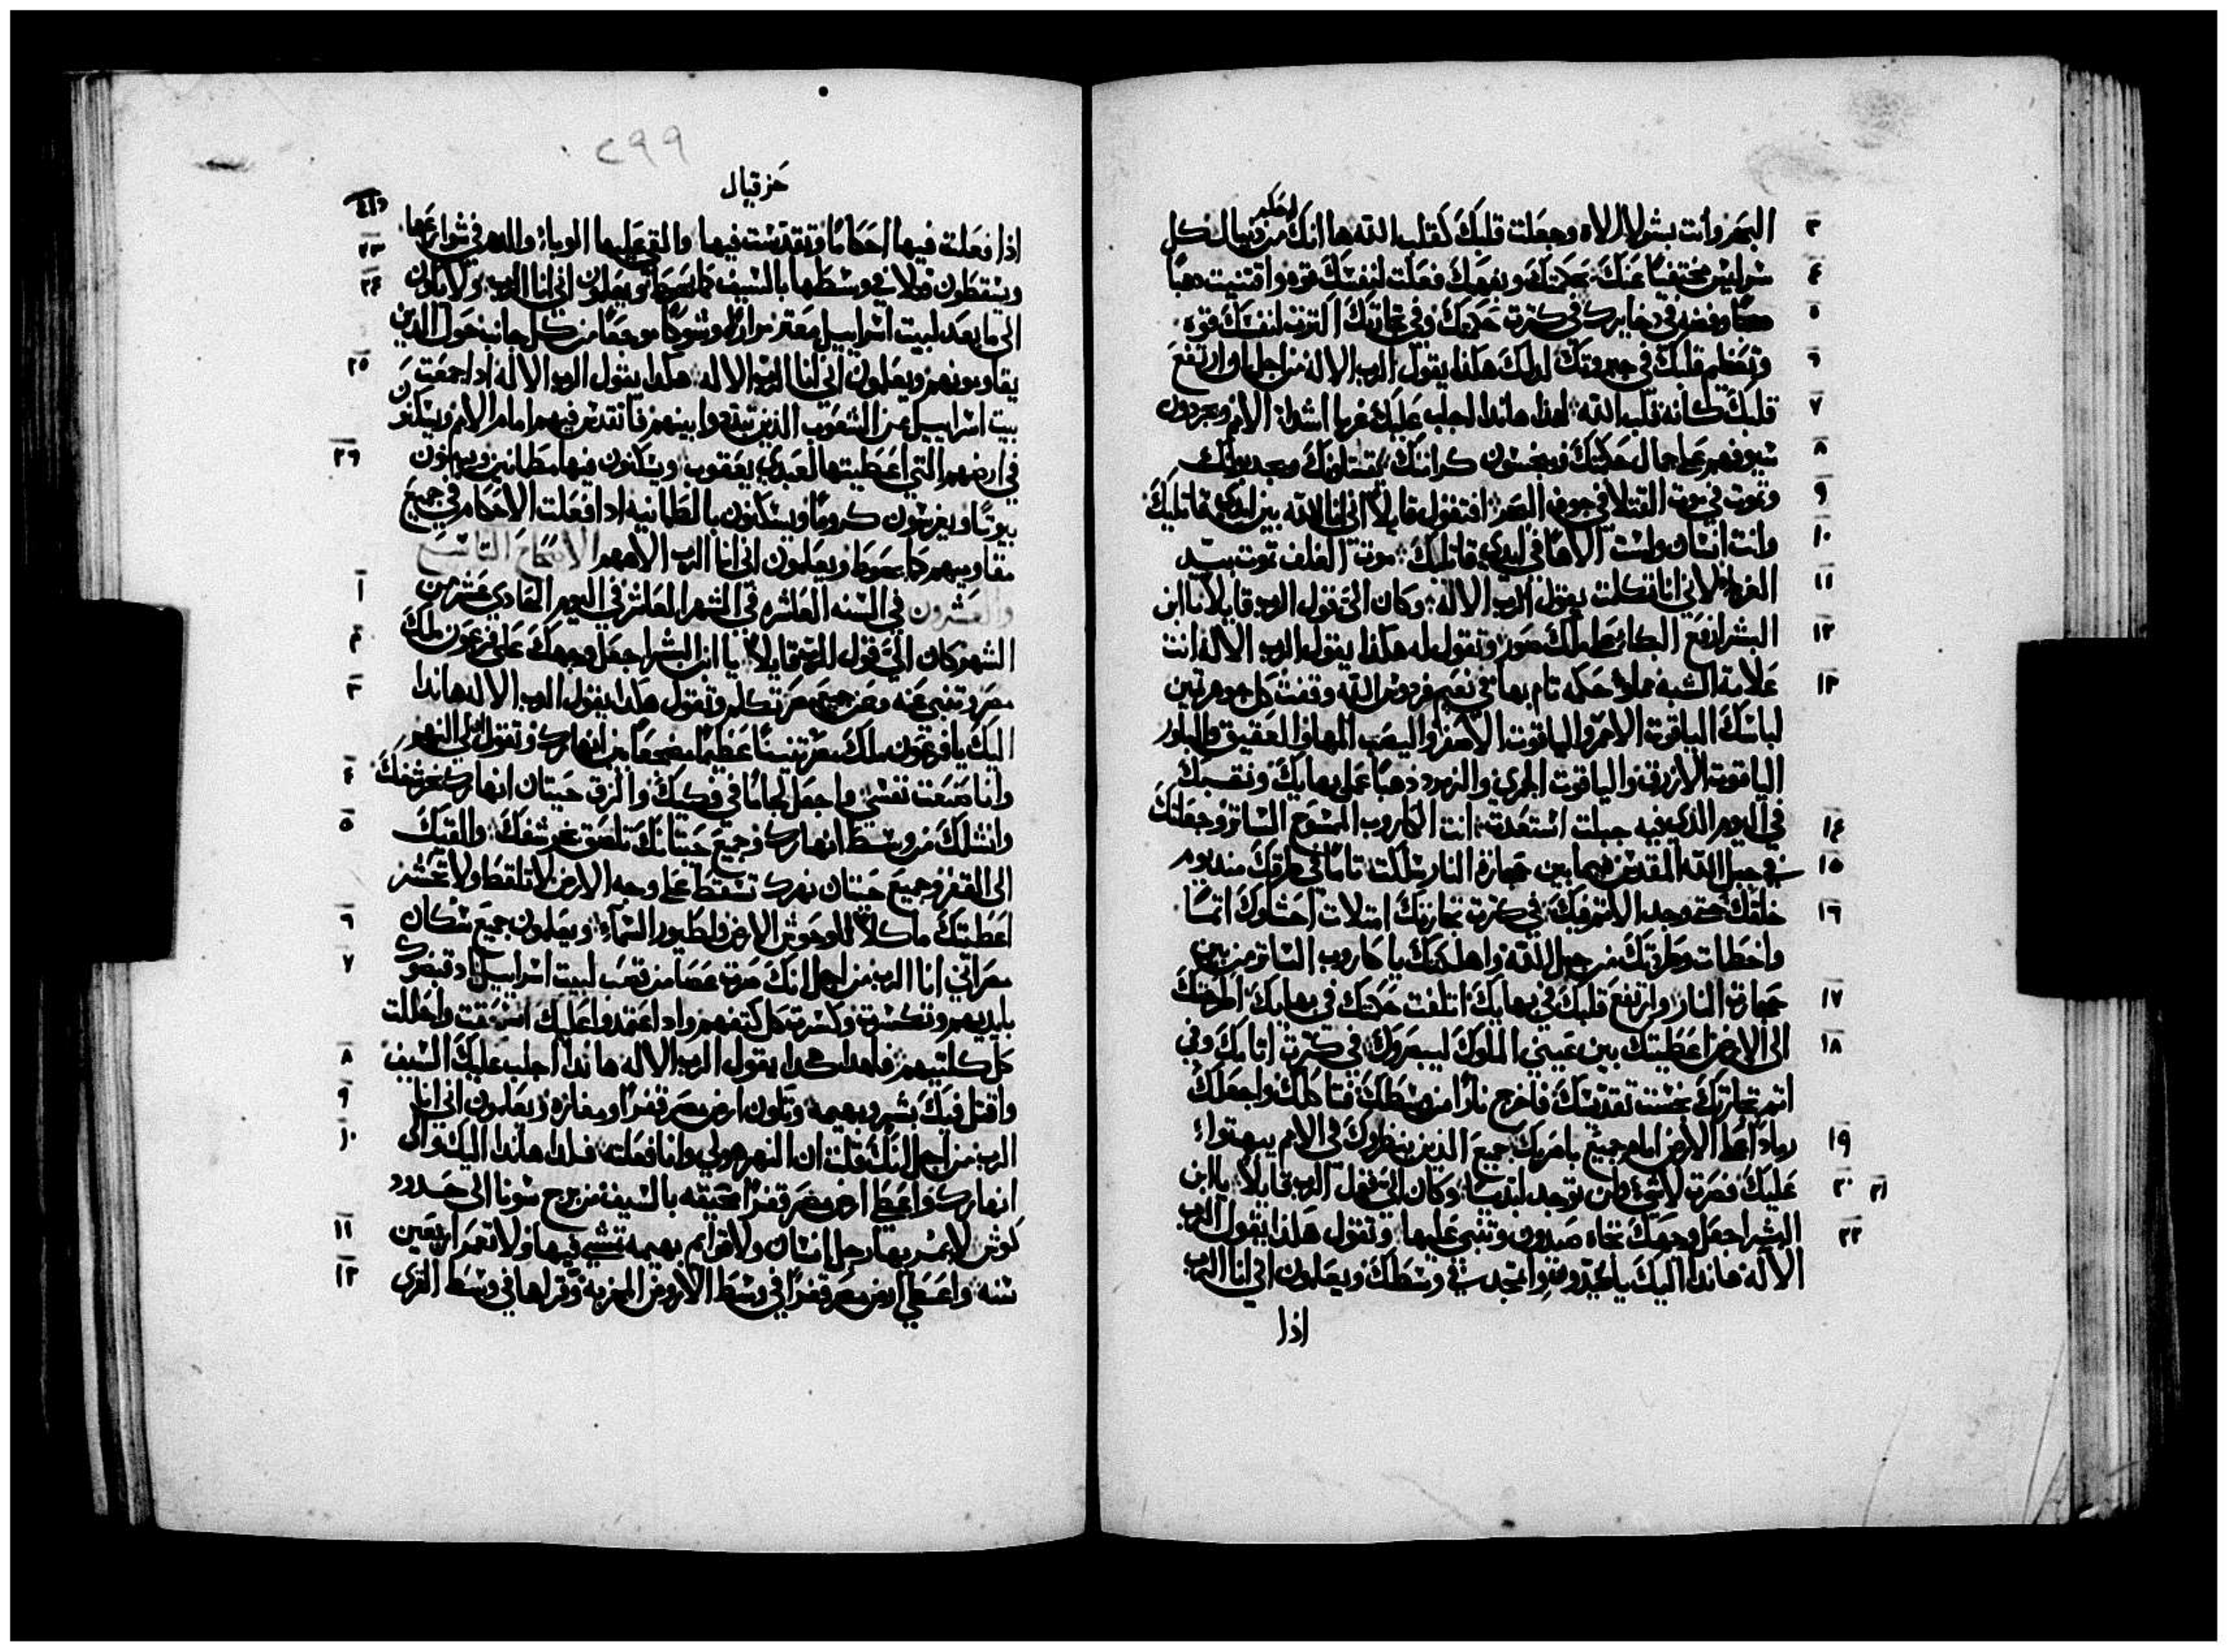 ٣ البحر وانت بشر لا الاه وجعلت قلبك كقلب الله ها انك احكم من دنيال كل
٤ سر ليس مختفيا عنك بحكمتك وبفهمك فعلت لنفسك قوه واقتنيت دهبا
٥ وفضه في دخايرك في كثرت حكمتك وفي تجارتك اكثرت لنفسك قوه
٦ وتعظم قلبك في جبروتك لدلك هكذا يقول الرب الاله من اجل ما وارتفع
٧ قلبك كانه قلب الله لهذا هاندا اجلب عليك غربا اشدا الامم ويجردون
٨ سيوفهم على جمال حكمتك ويخسون كرامتك يقتلونك ويحدبونك
٩ وتموت في موت القتلا في جوف البحر افتقول قايلا اني انا الله بين ايدي قاتليك
١٠ وانت انسان ولست الاها في ايدي قاتليك موت الغلف تموت بيد
١١ الغربا لاني انا تكلمت يقول الرب الاله وكان الي قول الرب قايلا يا ابن
١٢ البشر ارفع البكا على ملك صور وتقول له هكذا يقول الرب الاله انت
١٣ علامة الشبه مملو حكمه تام بها في نعيم فردوس الله وقفت كل جوهر ثمين
لباسك الياقوت الاحمر والياقوت الاصفر واليصب المها والعقيق والبلور
الياقوت الازرق والياقوت الجمري والزمرد ذهبا عمل بهايك ونقبك
١٤ في اليوم الذي فيه جبلت استعدت انت الكاروب المسوح الساتر وجعلتك
١٥ في جبل الله المقدس فيما بين حجارة النار سلكت تاما في طرقك منذ يوم
١٦ خلقك حتى وجد الاثم فيك في كثرت تجارتك امتلات احشاوك اثما
واخطات وطرحتك من جبل الله واهلكتك يا كاروب الساتر من بين
١٧ حجارة النار وارتفع قلبك في بهايك اتلفت حكمتك في بهايك اطرحتك
١٨ الى الارض اعطيتك بين عيني الملوك ليبصروك في كثرت اتامك وفي
اثم تجارتك نجست تقديسك فاخرج نارا من وسطك فتاكلك واجعلك
١٩ رمادا على الارض امام جميع باصريك جميع الذين ينظروك في الامم يبهتوا
٢٠ ٢١ عليك فصرت لاشي ولن توجد ابديا وكان الي قول الرب قايلا يا ابن
٢٢ البشر اجعل وجهك تجاه صيدون وتنبى عليها وتقول هكذا يقول الرب
الاله هاندا اليك يا صيدون واتمجد في وسطك ويعلمون اني انا الرب
اذا
٢٩٩
حزقيال
اذا فعلت فيها احكاما وتقدست فيها والقي عليها الوباء والدم في شوارعها
٢٣ ويسقطون قتلا في وسطها بالسيف كما يحوط ويعلمون اني انا الرب
٢٤ ولا يكون الى ما بعد لبيت اسراييل معتر مراره وشوكا موجعا من كل جانب حول الدين
٢٥ يقاومونهم ويعلمون اني انا الرب الاله هكدا يقول الرب الاله ادا جمعت
بيت اسراييل من الشعوب الذين تبددوا بينهم فاتقدس فيهم امام الامم ويسكنون
٢٦ في ارضهم التي اعطيتها لعبدي يعقوب ويسكنون فيها مطمانين ويبنون
بيوتا ويغرسون كروما ويسكنون بالطمانيه ادا فعلت الاحكام في جميع
مقاوميهم كما يحوط ويعلمون اني انا الرب الاههم الاصحاح التاسع
١ والعشرون في السنه العاشره في الشهر العاشر في اليوم الحادي عشر من
٢ الشهر كان الي قول الرب قايلا يا ابن البشر اجعل وجهك على فرعون ملك
٣ مصر وتنبى عنه وعن جميع مصر تكلم وتقول هكدا يقول الرب الاله هاندا
اليك يا فرعون ملك مصر تنينا عظيما مضجعا بين انهارك وتقول لي النهر
٤ وانا صنعت نفسي واجعل لجاما في فكيك والزق حيتان انهارك بحرشفك
٥ وانشلك من وسط انهارك وجميع حيتانك تلصق بحرشفك والقيك
الى القفر وجميع حيتان نهرك تسقط على وجه الارض لا تلقط ولا تحشر
٦ اعطيتك ماكلا للوحوش الارض ولطيور السماء ويعلمون جميع سكان
٧ مصر اني انا الرب من اجل انك صرت عصا من قصب لبيت اسراييل اد قبضوك
بايديهم وتكسرت وكسرت كل كتفهم واد اعتمدوا عليك انسحقت واحللت
٨ كل كليتيهم فلهدا هكدا يقول الرب الاله هاندا اجلب عليك السيف
٩ واقتل فيك بشر وبهيمه وتكون ارض مصر قفرا ومفازه ويعلمون اني انا
١٠ الرب من اجل انك قلت ان النهر هو لي وانا فعلت فلدا هاندا اليك والى
انهارك واعطي ارض مصر قفرا مخيفه بالسيف من برج سونا الى حدود
١١ كوش لا يمر بها رجل انسان ولا قوايم بهيمه تمشي فيها ولا تعمر اربعين
١٢ سنه واعطي ارض مصر قفرا في وسط الاروض الخربه وقراها في وسط القرى